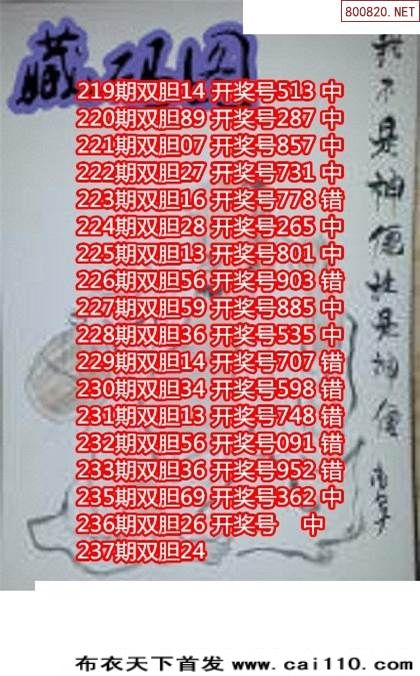 800820.NET
藏码图
219期双胆14 开奖号513 中
220期双胆89 开奖号287 中
221期双胆07 开奖号857 中
222期双胆27 开奖号731 中
223期双胆16 开奖号778 错
224期双胆28 开奖号265 中
225期双胆13 开奖号801 中
226期双胆56 开奖号903 错
227期双胆59 开奖号885 中
228期双胆36 开奖号535 中
229期双胆14 开奖号707 错
230期双胆34 开奖号598 错
231期双胆13 开奖号748 错
232期双胆56 开奖号091 错
233期双胆36 开奖号952 错
235期双胆69 开奖号362 中
236期双胆26 开奖号 中
237期双胆24
我不是神僊胜是神僊
布衣天下首发 www.cai110.com